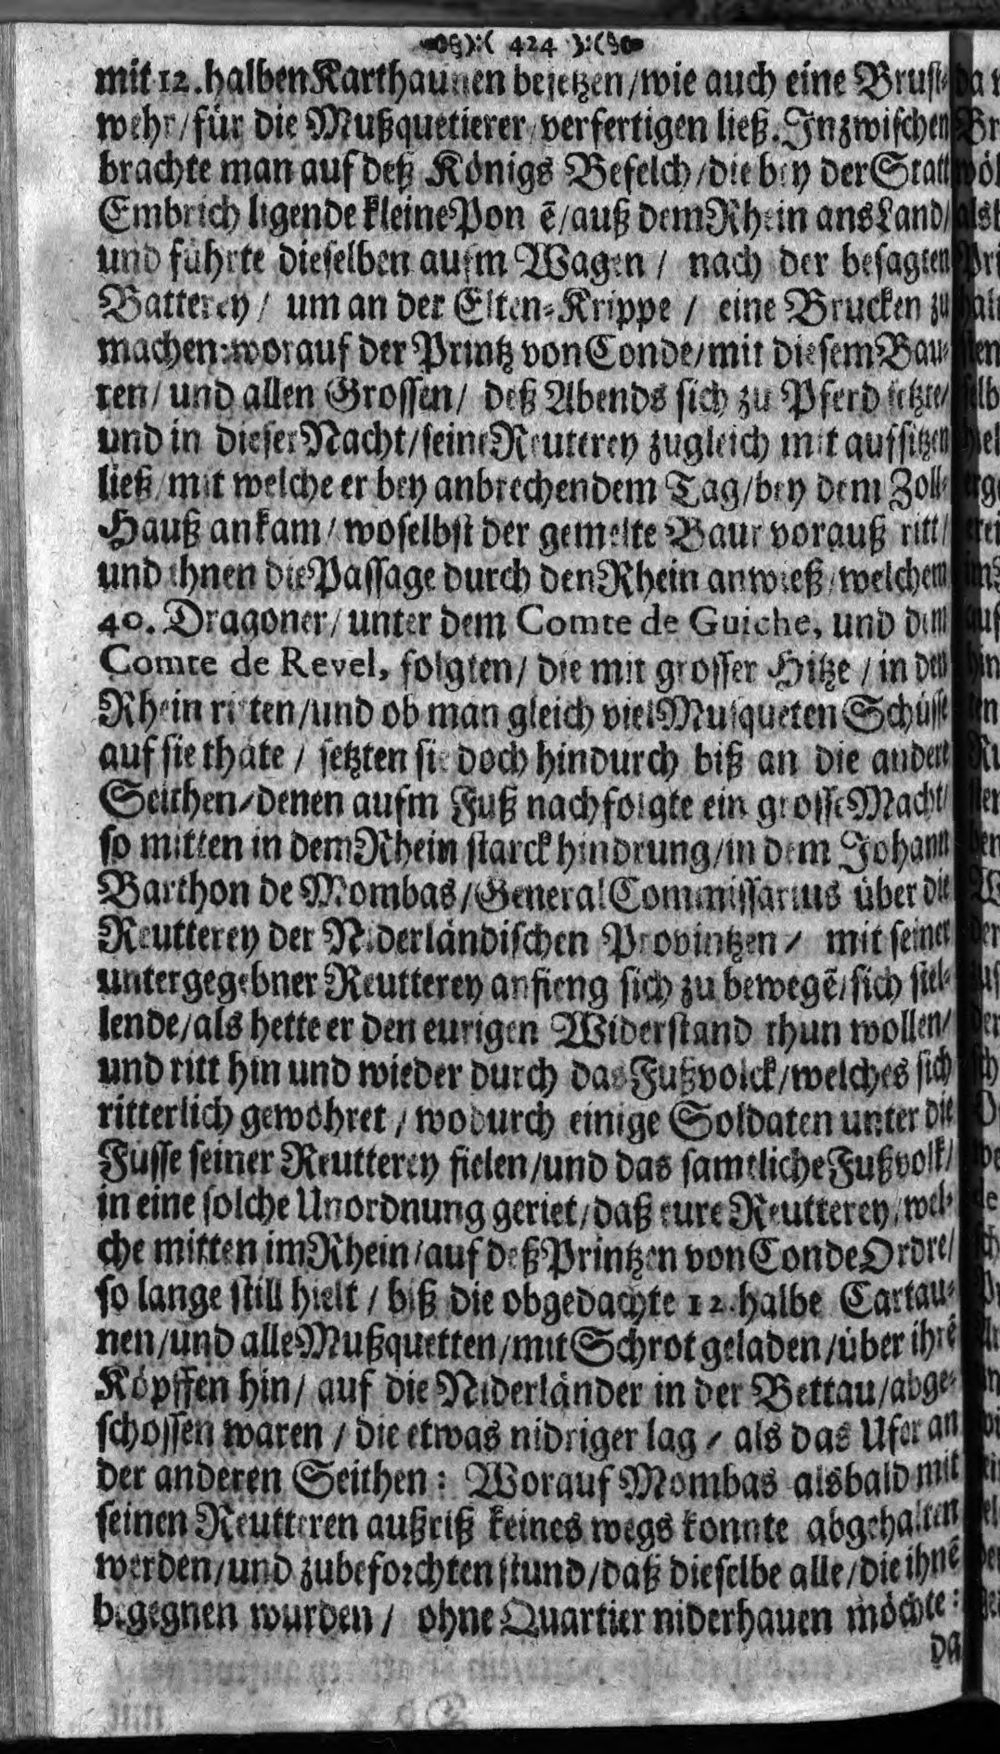 ):( 424 ):(
mit 12. halben Karthaunen besetzen/wie auch eine Brust-
wehr/für die Mußquetierer/verfertigen ließ. Inzwischen
brachte man auf deß Königs Befelch/die bey der Statt
Embrich ligende kleine Pon ẽ/auß dem Rhein ans Land/
und führte dieselben aufm Wagen / nach der besagten
Batterey / um an der Elten-Krippe / eine Brucken zu
machen: worauf der Printz von Conde/mit diesem Bau-
ren/ und allen Grossen/ deß Abends sich zu Pferd setzte/
und in dieser Nacht/seine Reuterey zugleich mit aufsitzen
ließ/mit welche er bey anbrechendem Tag/bey dem Zoll-
Hauß ankam/woselbst der gemelte Baur vorauß ritt/
und ihnen die Passage durch den Rhein anwieß/welchem
40. Dragoner/ unter dem Comte de Guiche, und dem
Comte de Revel, folgten/ die mit grosser Hitze / in den
Rhein ritten/und ob man gleich viel Musqueten Schüsse
auf sie thäte / setzten sie doch hindurch biß an die andere
Seithen/denen aufm Fuß nachfolgte ein grosse Macht/
so mitten in dem Rhein starck hindrung/in dem Johann
Barthon de Mombas/General Commissarius über die
Reutterey der Niderländischen Provintzen / mit seiner
untergegebner Reutterey anfieng sich zu bewegẽ/sich stel-
lende/als hette er den eurigen Widerstand thun wollen/
und ritt hin und wieder durch das Fußvolck/welches sich
ritterlich gewöhret / wodurch einige Soldaten unter die
Füsse seiner Reutterey fielen/und das samtliche Fußvolk/
in eine solche Unordnung geriet/daß eure Reutterey/wel-
che mitten im Rhein/auf deß Printzen von Conde Ordre/
so lange still hielt / biß die obgedachte 12. halbe Cartau-
nen/und alle Mußquetten/mit Schrot geladen/über ihrẽ
Köpffen hin/ auf die Niderländer in der Bettau/abge-
schossen waren / die etwas nidriger lag / als das Ufer an
der anderen Seithen: Worauf Mombas alsbald mit
seinen Reutteren außriß keines wegs konnte abgehalten
werden/und zubeforchten stund/daß dieselbe alle/die ihnẽ
begegnen wurden/ ohne Quartier niderhauen möchte:
da